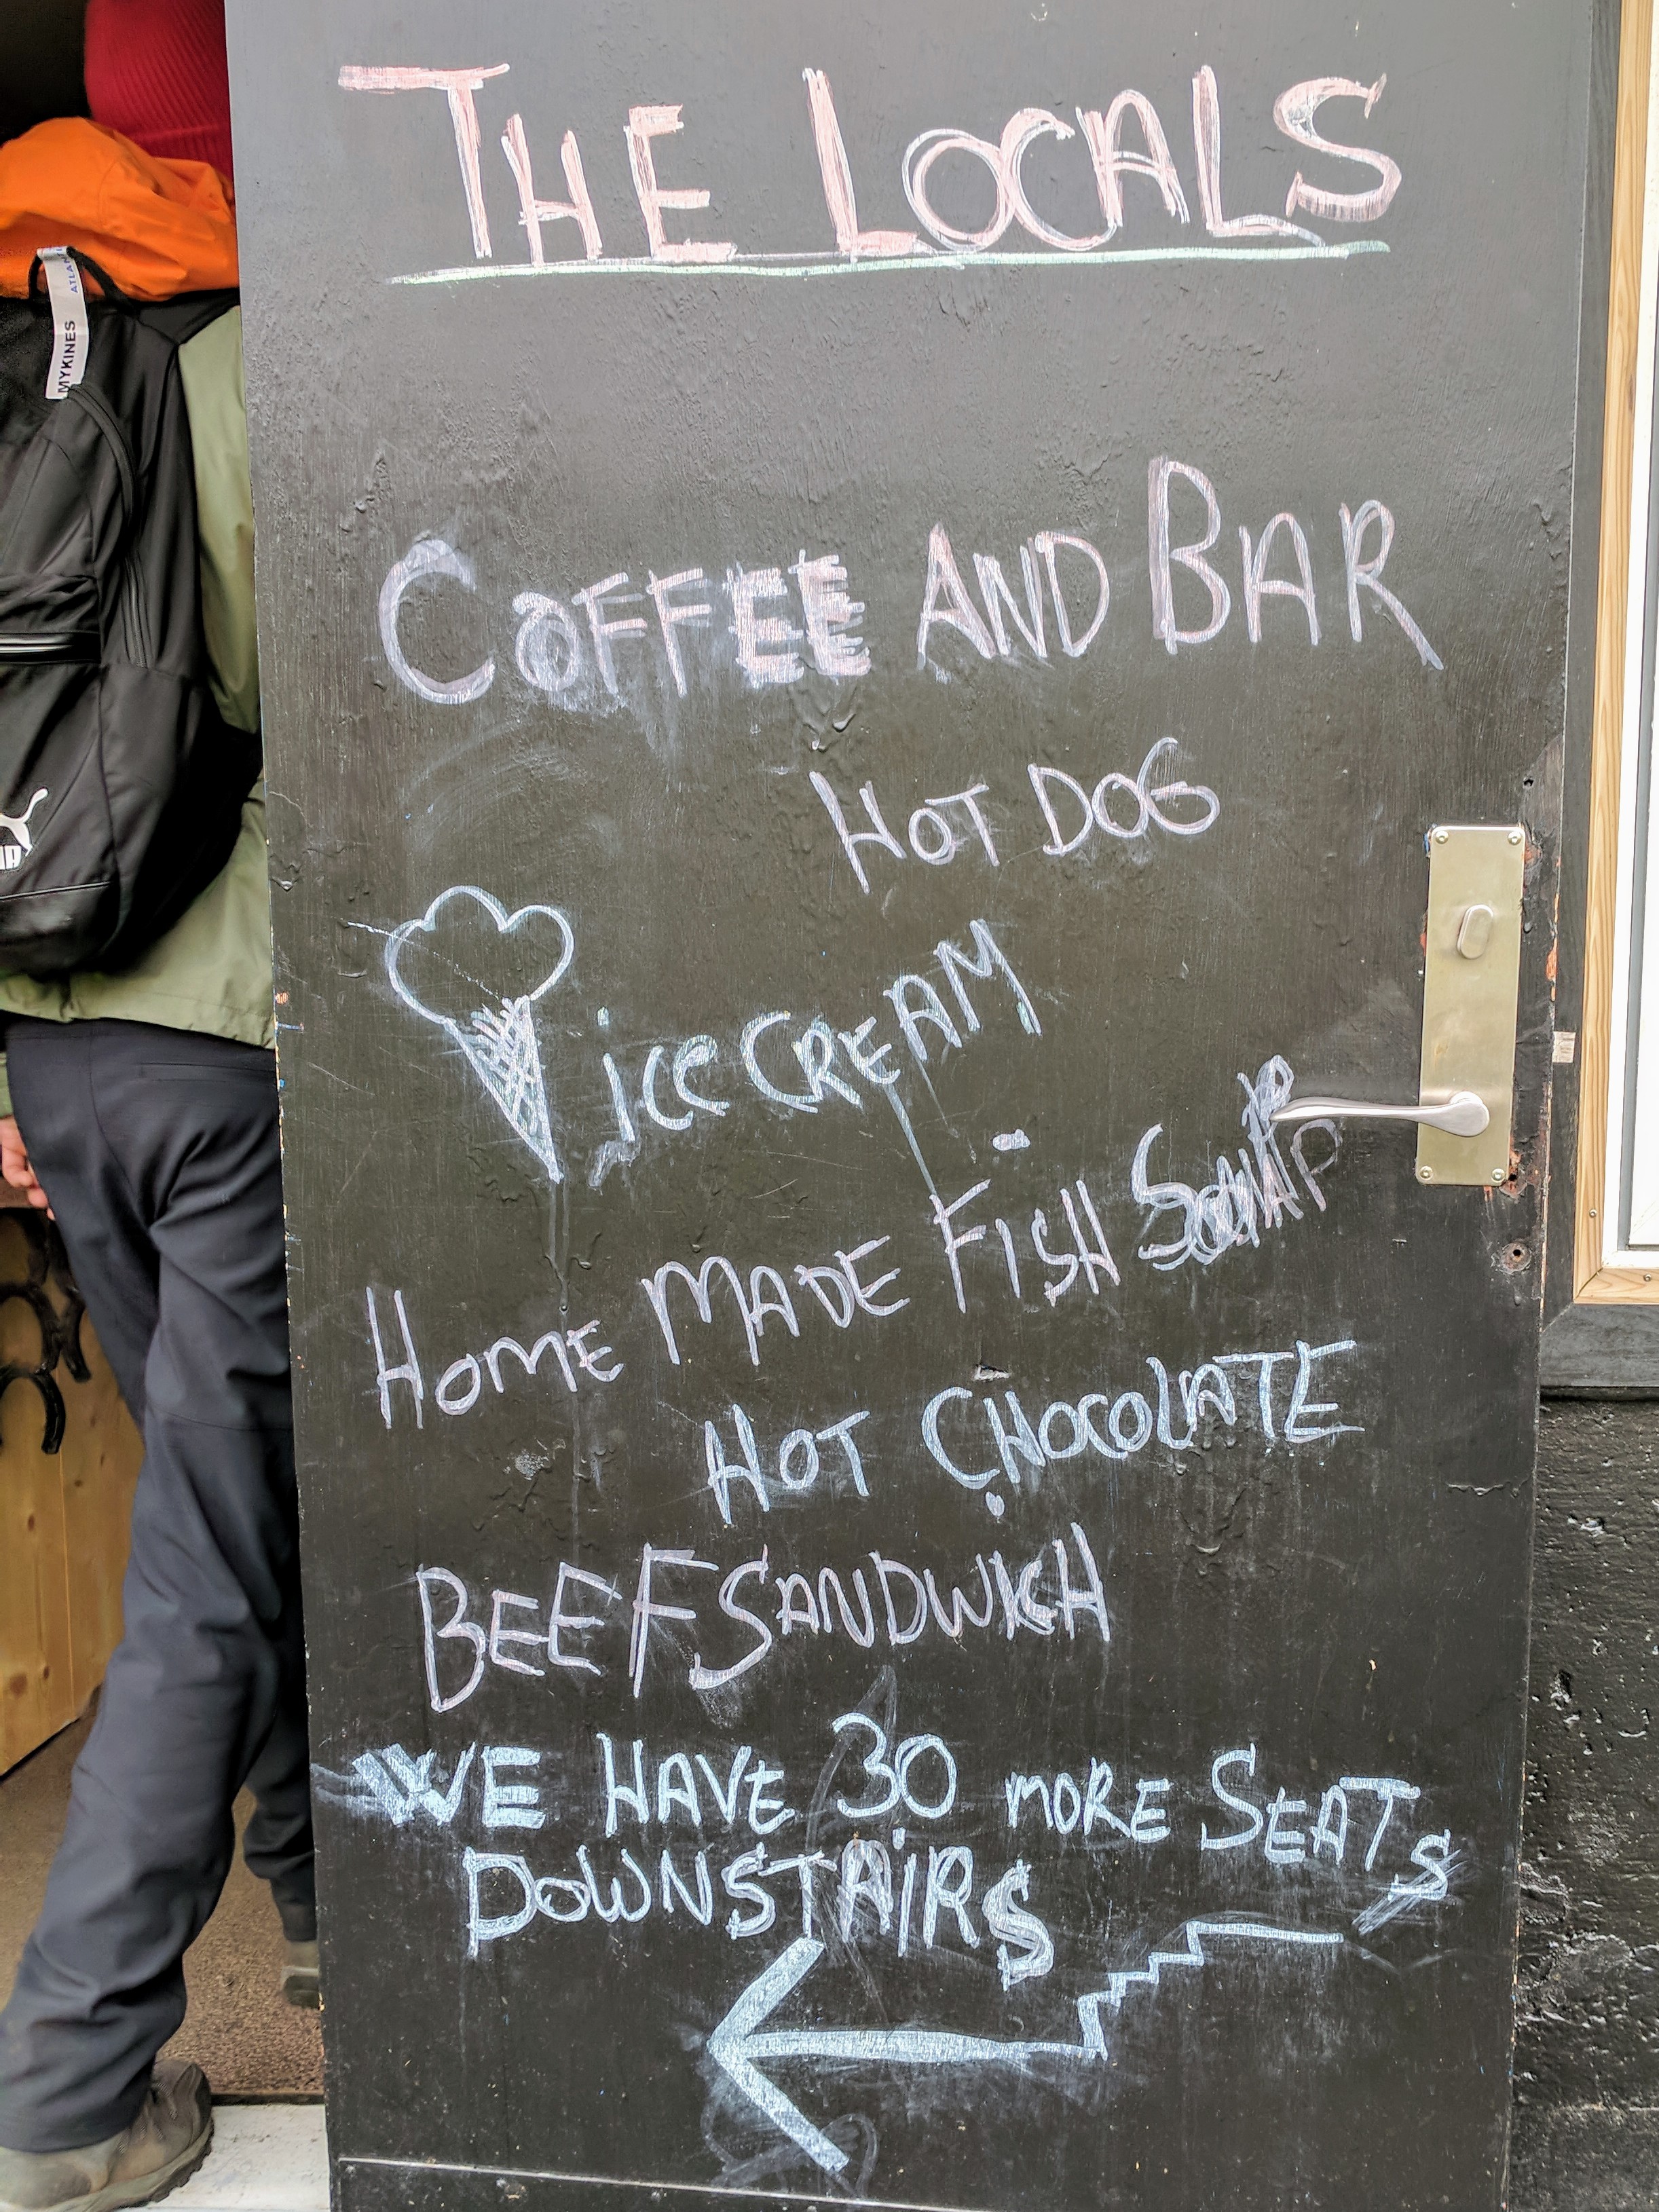 THE LOCALS
COFFEE AND BAR
HOT DOG
iCe CREAM
HOME MADE FISH
HOT CHOCOLATE
BEEF SANDWICH
WE HAVE 30 MORE SEATS
DOWNSTAIRS
MYKINES